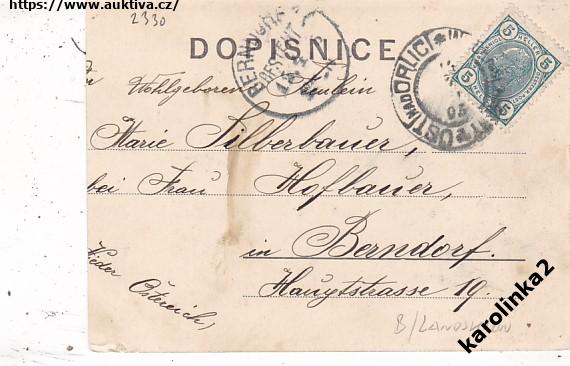 https://www.auktiva.cz/
2330
DOPISNICE
BERNDORF
BESTELLT
USTÍ NAD ORLICÍ
5 HELLER 5
5 5
Wohlgeboren Fräulein
Marie Silberbauer,
bei Frau Hofbauer,
in Berndorf.
Hauptstrasse 19.
Nieder
Östereich,
B/LANDSKRON
karolinka2